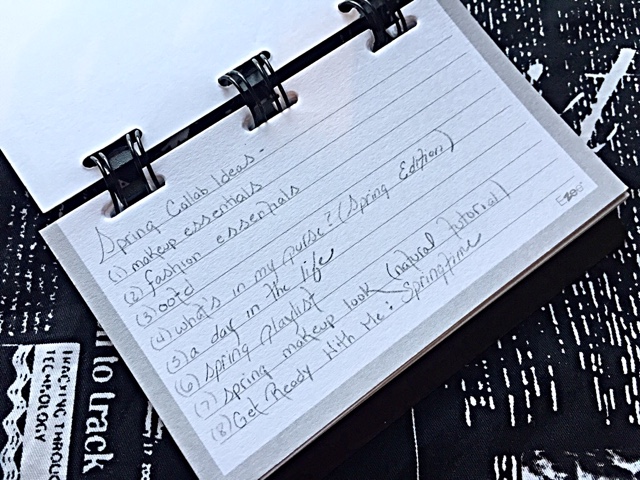 Spring Collab Ideas-
(1) makeup essentials
(2) fashion essentials
(3) ootd
(4) what's in my purse? (Spring Edition)
(5) a day in the life
(6) Spring Playlist
(7) Spring makeup look (natural tutorial)
(8) Get Ready With Me: Springtime
TRACKING THROUGH
TECHNOLOGY
ll to track